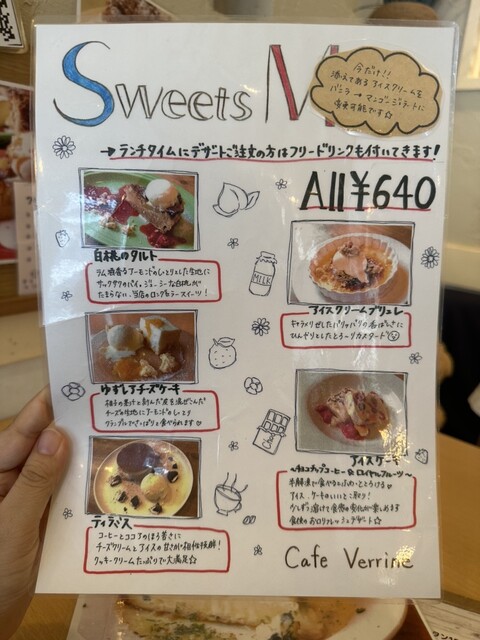 Sweets M
今だけ!!
添えてあるアイスクリームを
バニラ→マンゴージェラートに
変更可能です☆
→ランチタイムにデザートご注文の方はフリードリンクも付いてきます!
All¥640
白桃のタルト
ラム酒香るアーモンドのしっとりした生地に
サックサクのパイ、ジューシーな白桃が
たまらない、当店のロングセラースイーツ!
MILK
アイスクリームブリュレ
キャラメリゼしたパリパリの香ばしさに
ひんやりとしたとろ〜りカスタード
ゆずレアチーズケーキ
柚子の果汁と刻んだ皮を混ぜこんだ
チーズの生地にアーモンドのしっとり
クランブルでさっぱりと食べられます♡
アイスケーキ
〜チョコチップコーヒー or ロイヤルフルーツ〜
半解凍で食べるとふわっととろける♡
アイス、ケーキのいいとこ取り!
少しずつ溶けて食感の変化が楽しめます
食後のお口リフレッシュデザート☆
ティラミス
コーヒーとココアのほろ苦さに
チーズクリームとアイスの甘さが相性抜群!
クッキークリームたっぷりで大満足☆
Cafe Verrine